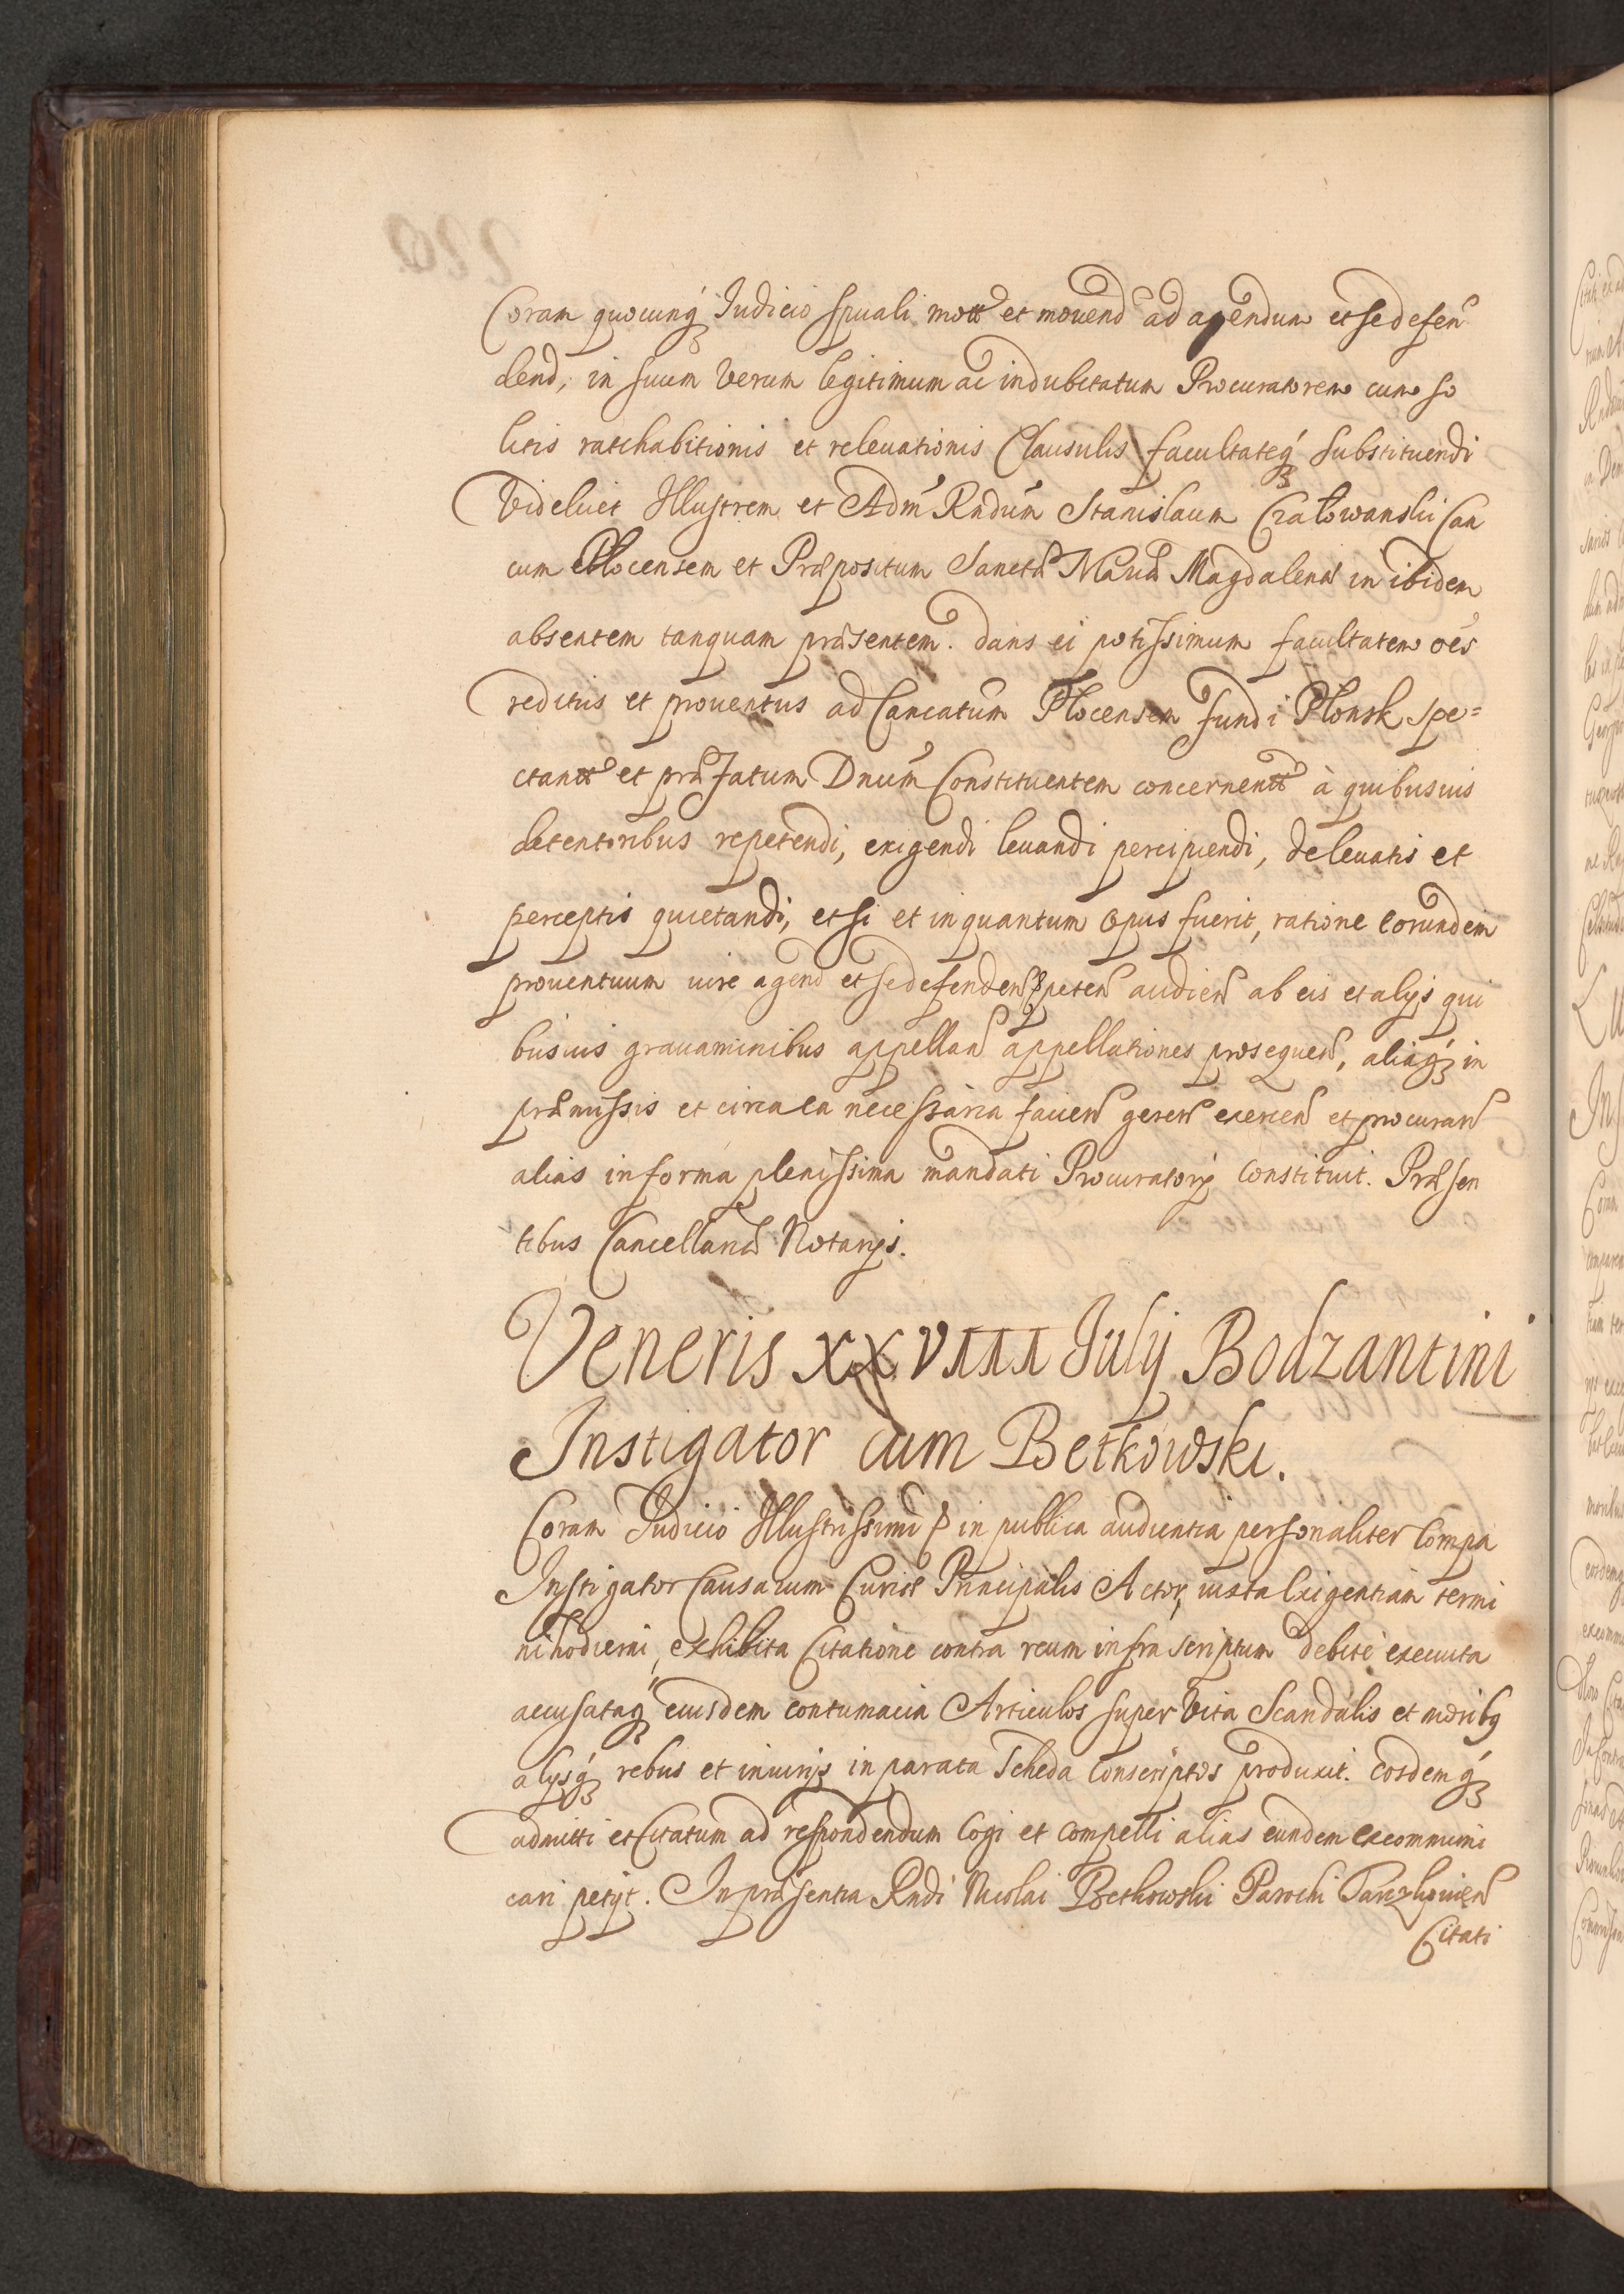 Coram quocunq́ꝫ Iudicio spuali mott et mouend ad agendum et se defen
dend, in suum verum legitimum ac indubitatum Procuratorem cum so
litis ratihabitionis et releuationis Clausulis facultateq́ꝫ substituendi
Videlicet Illustrem et Adm̃ Rndũm Stanislaum Czałowanski Can
cum Plocensem et Præpositum Sanctæ Mariæ Magdalenæ in ibidem
absentem tanquam præsentem. dans ei potissimum facultatem oẽs
reditus et prouentus ad Cancatum Plocensem fundi Plonsk spe=
ctantt et præfatum Dnũm Constituentem concernentt à quibusuis
detentoribus repetendi, exigendi leuandi percipiendi, de leuatis et
perceptis quietandi, et si et in quantum opus fuerit, ratione eorundem
prouentuum iure agend et se defenden peten audien ab eis et alijs qui
busuis grauaminibus appellan appellationes prosequen, aliaq́ꝫ in
præmissis et circa ea necessaria facien geren exercen et procuran
alias in forma plenissima mandati Procuratorij constituit. Præsen
tibus Cancellariæ Notarijs.
Veneris XXVIII Iulij Bodzantini
Instigator cum Betkowski.
Coram Iudicio Illustrissimi ꝑ in publica audientia personaliter Compa
Instigator Causarum Curiæ Principalis Actor, iuxta exigentiam termi
ni hodierni, exhibita Citatione contra reum infra scriptum debite executa
accusataq́ꝫ eiusdem contumacia Articulos super vita Scandalis et moribq
alijsq́ꝫ rebus et iniurijs in parata Scheda Conscriptos produxit. eosdemq́ꝫ
admitti et Citatum ad respondendum Cogi et Compelli alias eundem excommuni
cari petijt. In præsentia Rndi Nicolai Betkowski Parochi
Citati